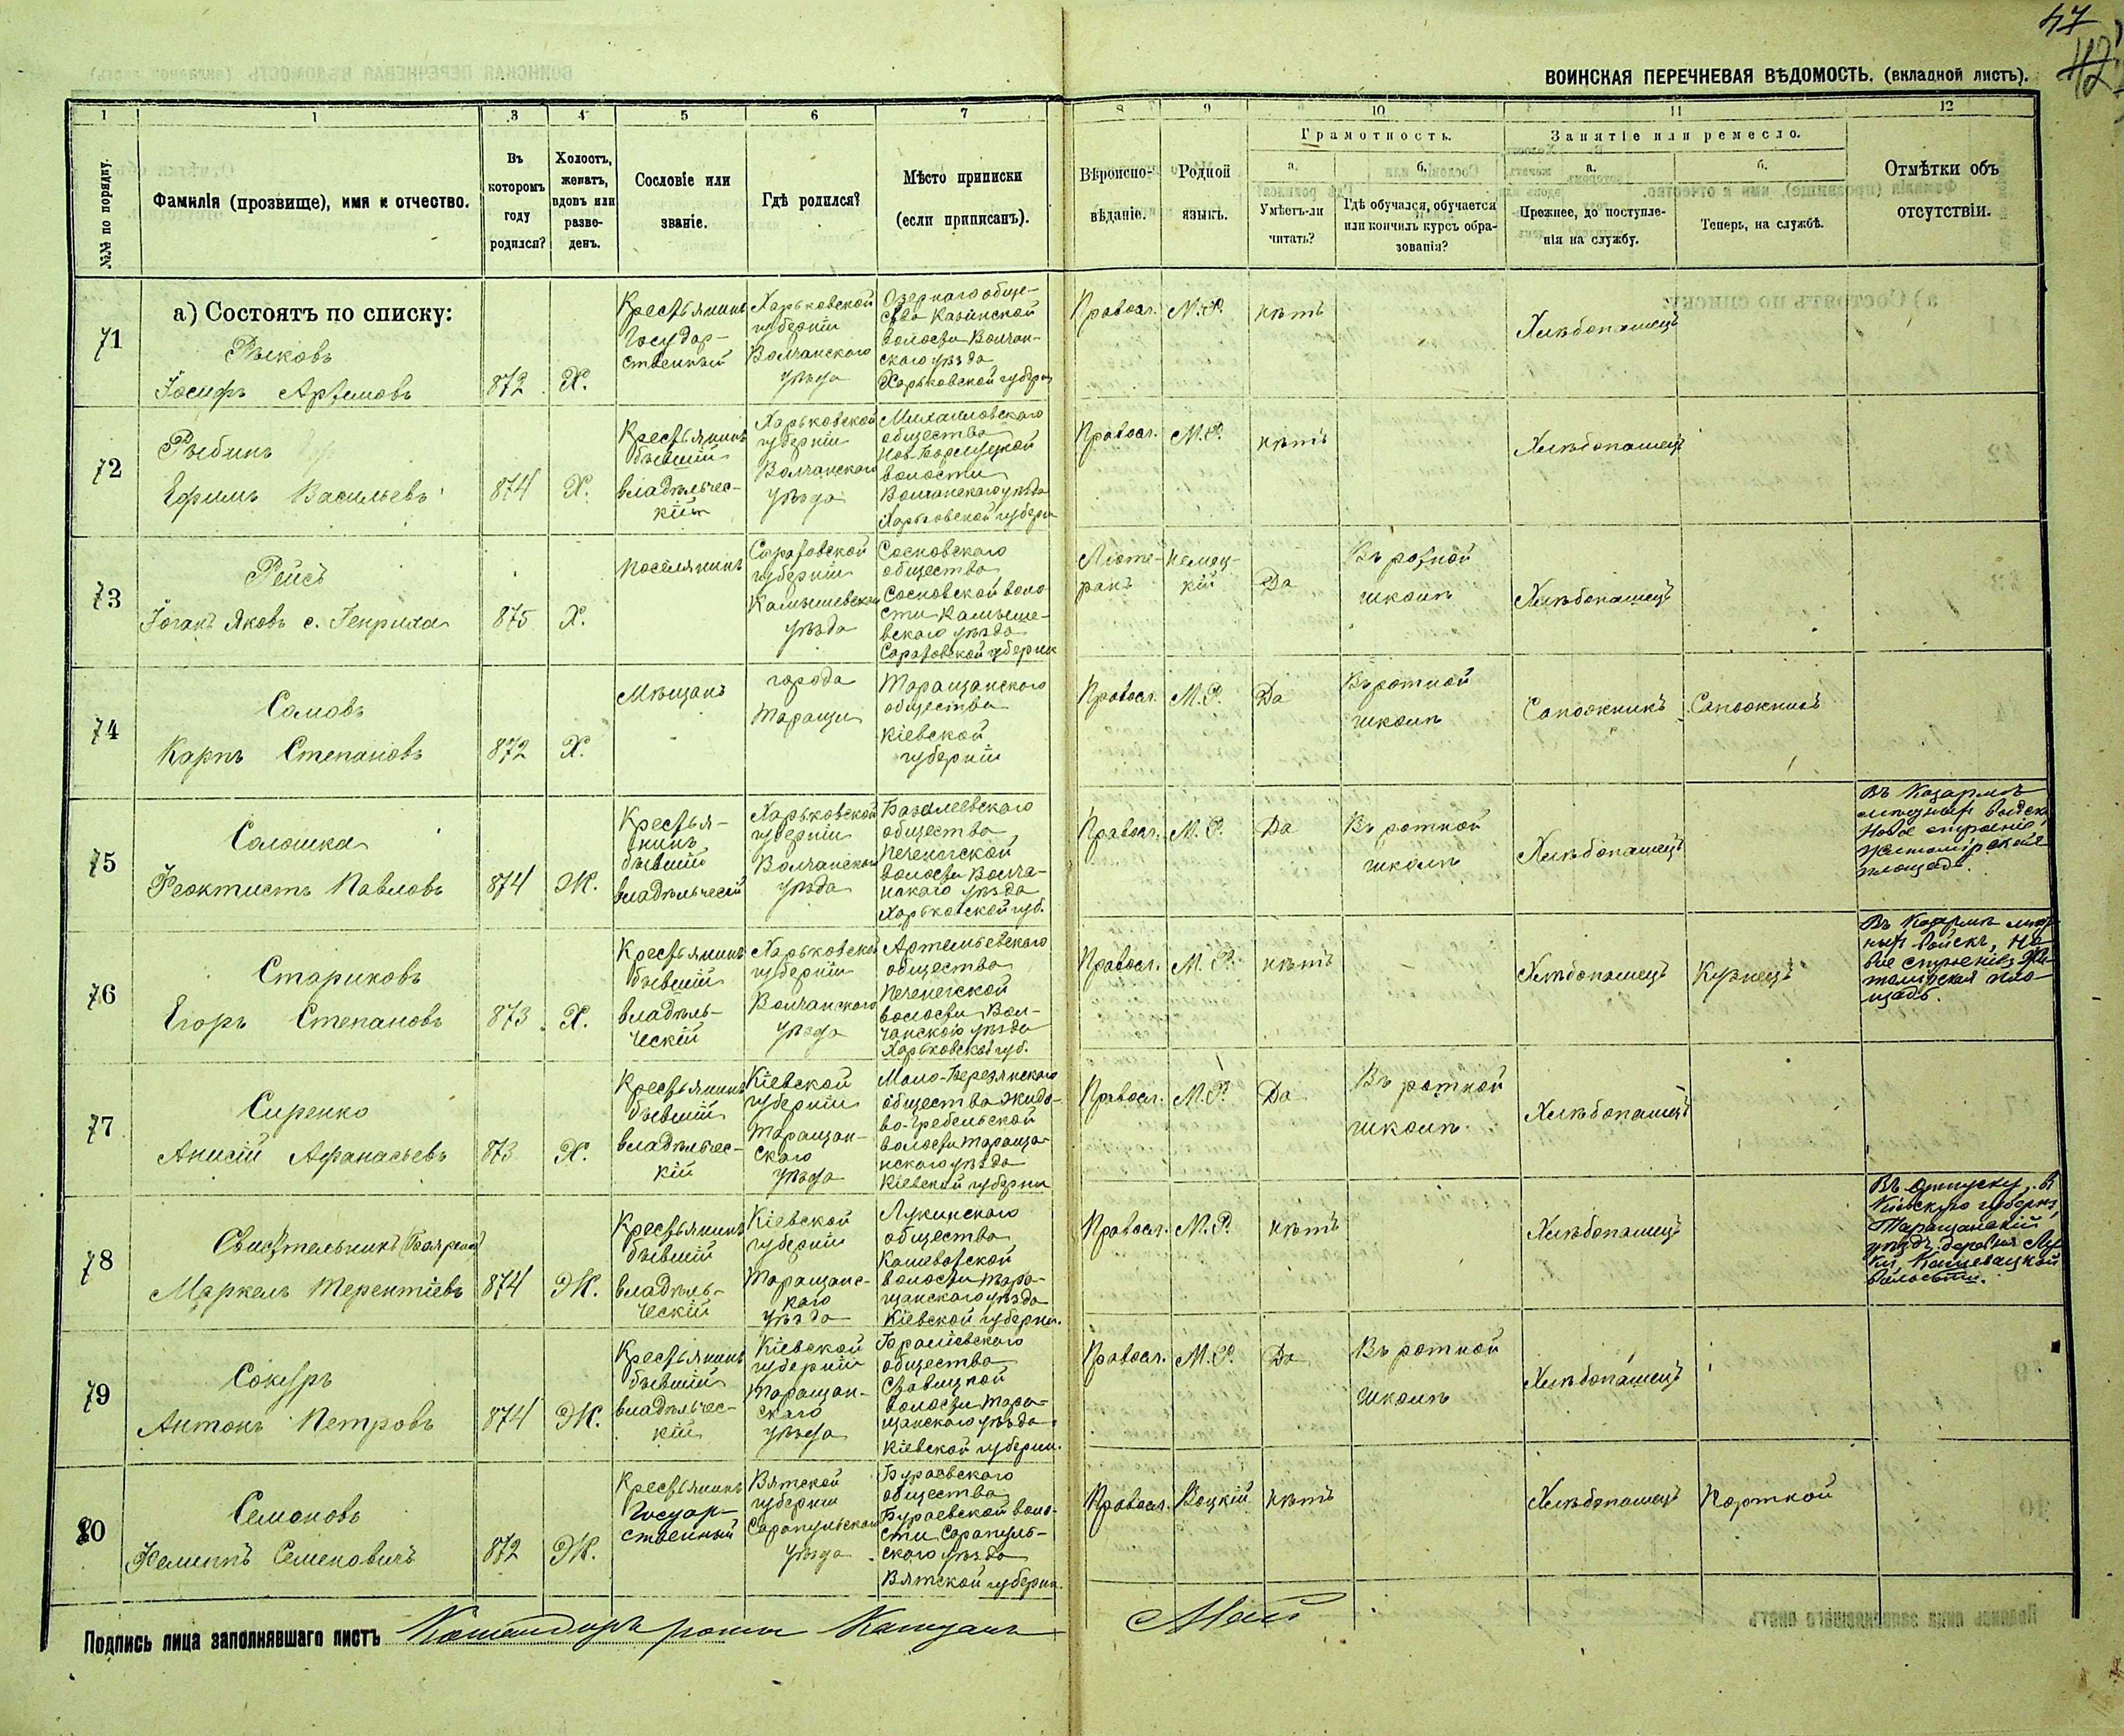 47
42
ВОИНСКАЯ ПЕРЕЧНЕВАЯ ВѢДОМОСТЬ. (вкладной листъ).
1 1 3 4 5 6 7 8 9 10 11 12
№№ по порядку.
Фамилія (прозвище), имя и отчество.
Въ которомъ году родился?
Холостъ, женатъ, вдовъ или разве-
денъ.
Сословіе или
званіе.
Гдѣ родился?
Мѣсто приписки
(если приписанъ).
Вѣроиспо-
вѣданіе.
Родной
языкъ.
Грамотность.
а.
Умѣетъ-ли
читать?
б.
Гдѣ обучался, обучается
или кончилъ курсъ обра-
зованія?
Занятіе или ремесло.
а.
Прежнее, до поступле-
нія на службу.
б.
Теперь, на службѣ.
Отмѣтки объ
отсутствіи.
а) Состоятъ по списку:
71
Рыковъ
Іосифъ Артемовъ
872
Х.
Крестьянинъ
Государ-
ственный
Харьковской
губерніи
Волчанскаго
уѣзда
Озернаго обще-
ства Казинской
волости Волчан-
скаго уѣзда
Харьковской губерн
Правосл.
М.Р.
нѣтъ
Хлѣбопашецъ
72
Рыбинъ
Ефимъ Васильевъ
874
Х.
Крестьянинъ
бывшій
владѣльчес-
кій
Харьковской
губерніи
Волчанскаго
уѣзда
Михаиловскаго
общества
волости
Волчанскаго уѣзда
Харьковской губерн
Правосл.
М.Р.
нѣтъ
Хлѣбопашецъ
73
Рейсъ
Іоганъ Яковъ с. Генриха
875
Х.
поселянинъ
Саратовской
губерніи
Камышевскаго
уѣзда
Сосновскаго
общества
Сосновской воло
сти Камыше-
вскаго уѣзда
Саратовской губерніи
Люте-
ранъ
немец-
кій
Да
Въ ротной
школѣ
Хлѣбопашецъ
74
Сомовъ
Карпъ Степановъ
872
Х.
Мѣщанъ
города
Таращи
Таращанскаго
общества
Кіевской
губерніи
Правосл.
М.Р.
Да
Въ ротной
школѣ
Сапожникъ
Сапожникъ
75
Солошка
Феоктистъ Павловъ
874
Ж.
Крестья-
нинъ
бывшій
владѣльческій
Харьковской
губерніи
Волчанскаго
уѣзда
Базалеевскаго
общества
Печенегской
волости Волча-
нскаго уѣзда
Харьковской губ.
Правосл.
М.Р.
Да
Въ ротной
школѣ
Хлѣбопашецъ
Въ Казармѣ
мѣстныхъ войскъ
Новое строеніе
Житомірской
площадь.
76
Стариковъ
Егоръ Степановъ
873
Х.
Крестьянинъ
бывшій
владѣль-
ческій
Харьковской
губерніи
Волчанскаго
уѣзда
Артемьевскаго
общества
Печенегской
волости Вол-
чанскаго уѣзда
Харьковской губ.
Правосл.
М.Р.
нѣтъ
Хлѣбопашецъ
Кузнецъ
Въ Казармѣ мѣст
ныхъ войскъ, Но
вое строеніе, Жи-
томірская пло
щадь.
77
Сиренко
Анисій Афанасьевъ
873
Х.
Крестьянинъ
бывшій
владѣльчес-
кій
Кіевской
губерніи
Таращан-
скаго
уѣзда
Мало-Березянскаго
общества Жидо-
во-Гребельской
волости Тараща-
нскаго уѣзда
Кіевской губерніи
Правосл.
М.Р.
Да
Въ ротной
школѣ.
Хлѣбопашецъ
78
Маркелъ Терентіевъ
874
Ж.
Крестьянинъ
бывшій
владѣль-
ческій
Кіевской
губерніи
Таращанс-
каго
уѣзда
Лукинскаго
общества
Кошеватской
волости Тара-
щанскаго уѣзда
Кіевской губерніи.
Правосл.
М.Р.
нѣтъ
Хлѣбопашецъ
Въ отпуску. В
Кіевскую губерн.
Таращанскій
уѣздъ деревня Лу
ки, Кошеватской
волости.
79
Сокуръ
Антонъ Петровъ
874
Ж.
Крестьянинъ
бывшій
владѣльчес-
кій
Кіевской
губерніи
Таращан-
скаго
уѣзда
общества
Ставищкой
волости Тара-
щанскаго уѣзда
Кіевской губерніи.
Правосл.
М.Р.
Да
Въ ротной
школѣ
Хлѣбопашецъ
80
Семоновъ
Филиппъ Семеновичъ
872
Ж.
Крестьянинъ
Государ-
ственный
Вятской
губерніи
Сарапульскаго
уѣзда
Бураевскаго
общества
Бураевской воло-
сти Сарапуль-
скаго уѣзда
Вятской губерніи.
Правосл.
Воцкій
нѣтъ
Хлѣбопашецъ
Портной
Подпись лица заполнявшаго листъ Командиръ роты Капитанъ